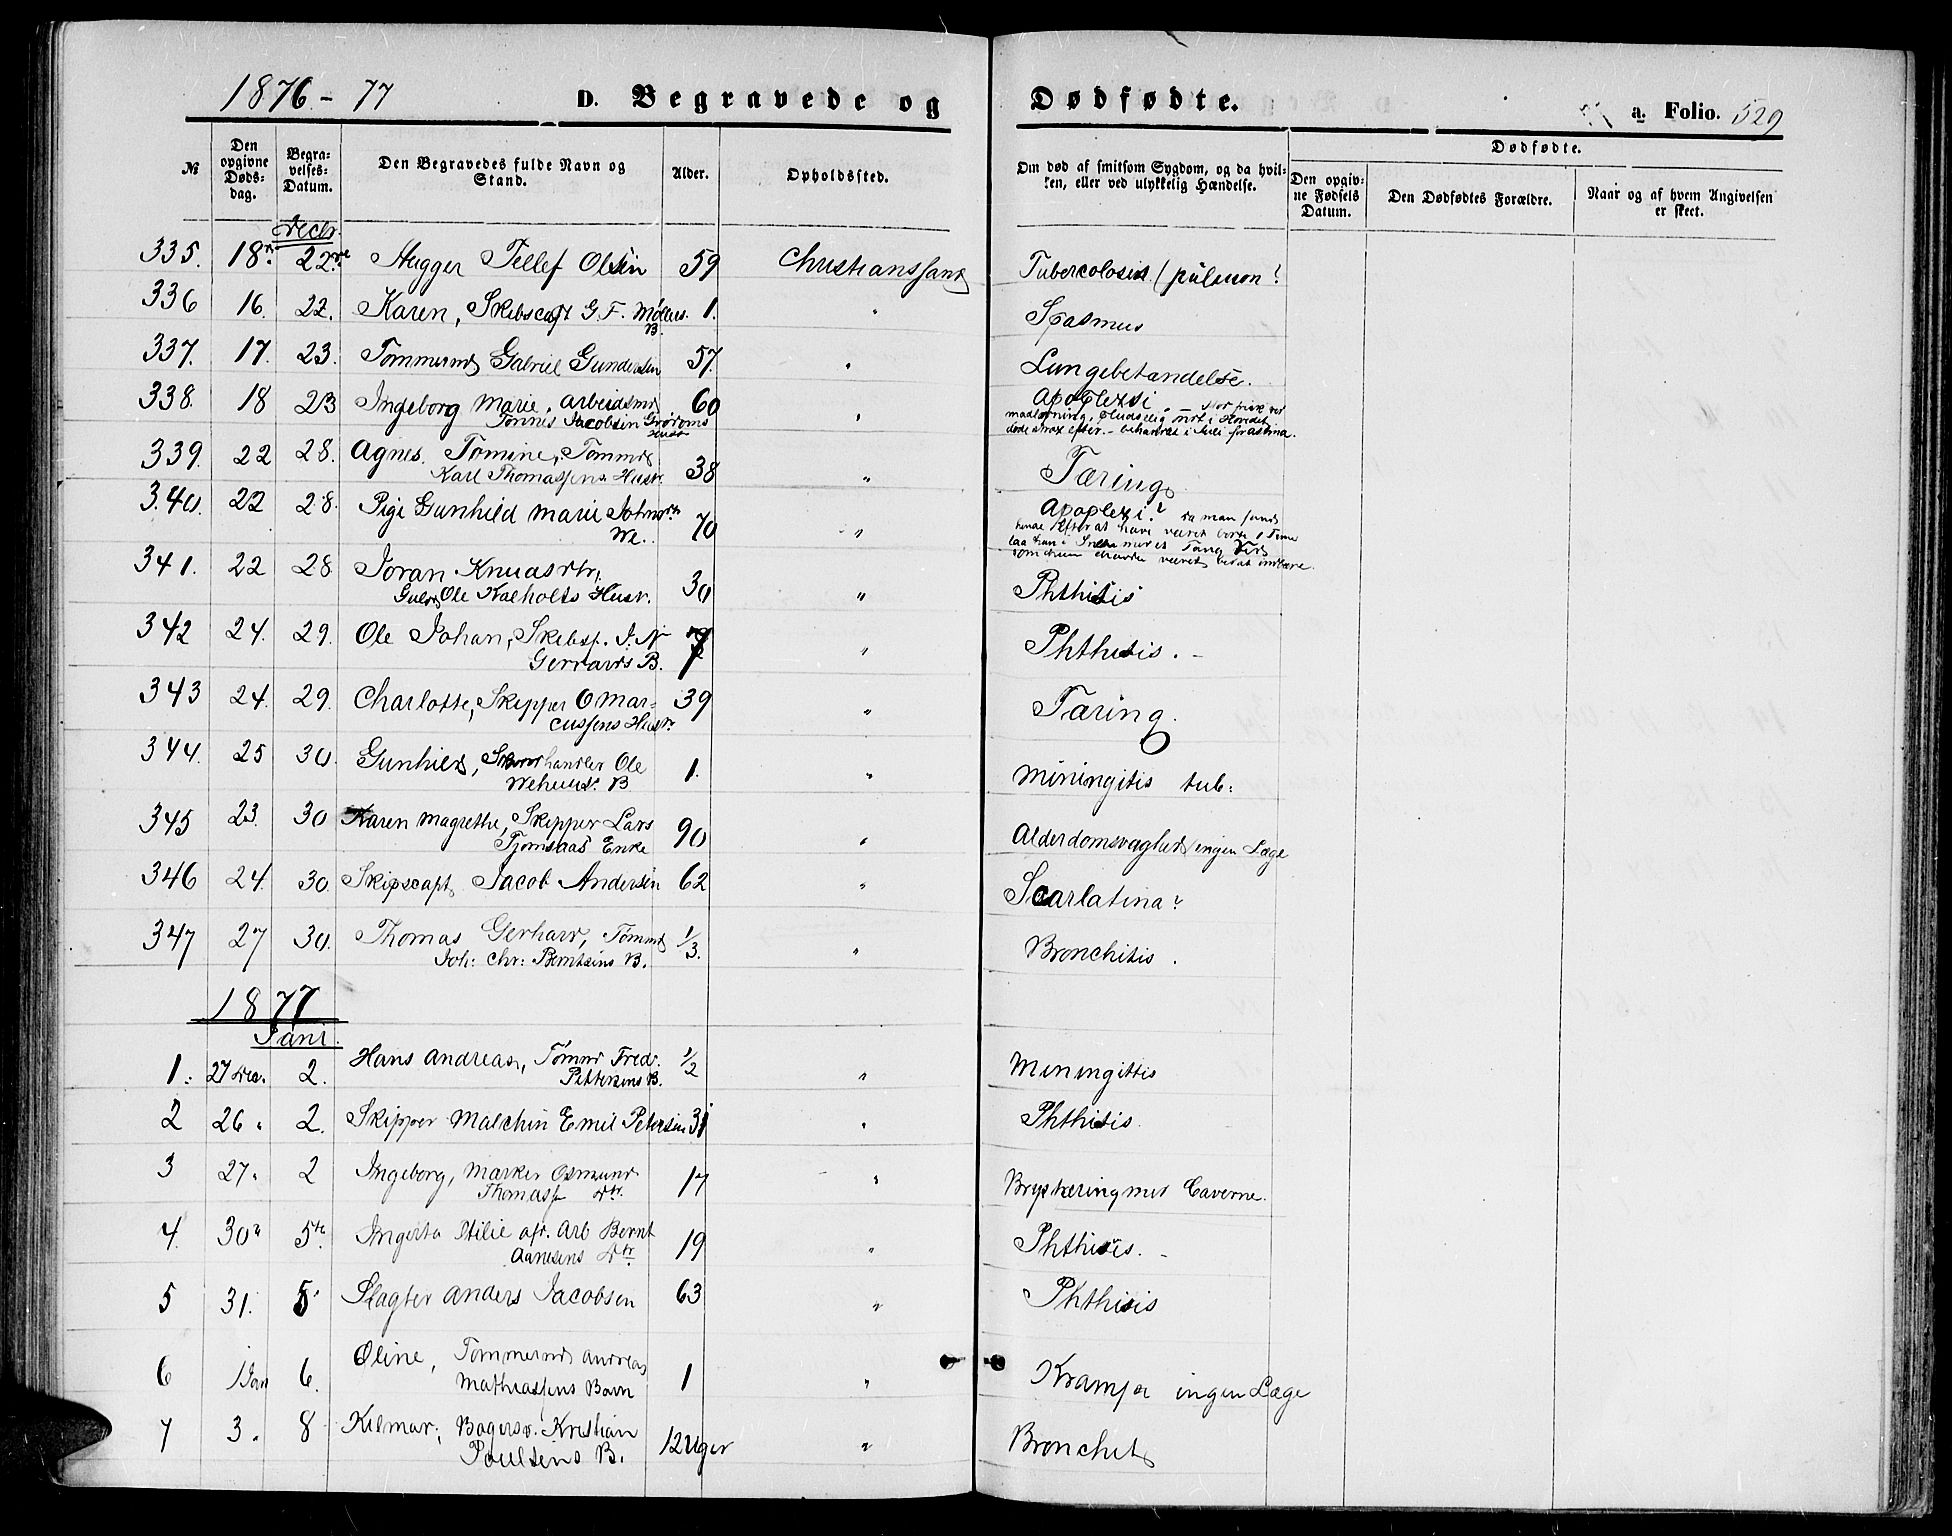 1876-77 D. Begravede og Dødfødte. a. Folio. 529
№ Den opgivne Døds-dag. Begra-velses-Datum. Den Begravedes fulde Navn og Stand. Alder. Opholdssted. Om død af smitsom Sygdom, og da hvil-ken, eller ved ulykkelig Hændelse. Dødfødte.
Den opgiv-ne Fødsels Datum. Den Dødfødtes Forældre. Naar og af hvem Angivelsen er skeet.
Decbr.
335. 18 22 Hugger Tellef Olsen 59 Christianssand Tubercolosis (pulmon?
336 16. 22. Karen, Skibscapt G.F. Møllers 1. " Spasmus
B.
337. 17. 23. Tømmermd Gabriel Gundersen 57. " Lungebetændelse.
338. 18 23 Ingeborg Marie, Arbeidsmd 60 " Apoplexi.
Tønnes Jacobsen Hustr
339. 22 28. Agnes Tomine, Tømmd 38 " Tæring
Karl Thomassens Hustr.
340. 22 28. Pige Gunhild Marie Johnsdtr 70 " Apoplexi? da man fandt
We.
341. 22 28 Joran Knudsdtr, 30 " Phthisis
Guld Ole Kalholts Hustr.
342 24. 29. Ole Johan, Skibsf. J. N 7 " Phthisis. -
Gerrards B.
343 24. 29. Charlotte, Skipper O Mar- 39 " Tæring.
cussens Hustr
344. 25 30. Gunhild, handler Ole 1. " Miningitis tub:
B
345 23. 30 Karen Magrethe, Skipper Lars 90 " Alderdomsvaghed/ingen Læge
Tjomsaas Enke
346 24. 30. Skipscapt. Jacob Andersen 62 " Scarlatina?
347 27 30. Thomas Gerhard, Tømmd 1/3. " Bronchitis.
Joh: Chr: Berntsens B.
1877
Janr.
1. 27 Dec. 2. Hans Andreas, Tømmd Fredr. 1/2 " Meningittis
Pettersens B.
2 26 " 2. Skipper Malchin Emil Petersen 31 " Phthisis.
3 27 " 2 Ingeborg, Mærker Osmund 17 " Brysttæring med Caverne.
Thomass Dtr.
4. 30 " 5te Otilie afd. Arb Bernt 19 " Phthisis. -
Aanesens Dtr
5 31. 5 Slagter Anders Jacobsen 63 " Phthisis
6 1 Jan 6. Oline, Tømmermd Andreas 1 " Krampe ingen Læge
Mathiassens Barn
7 3. 8 Kilmar, Bagersv. Kristian 12 Uger " Bronchet
Poulsens B.